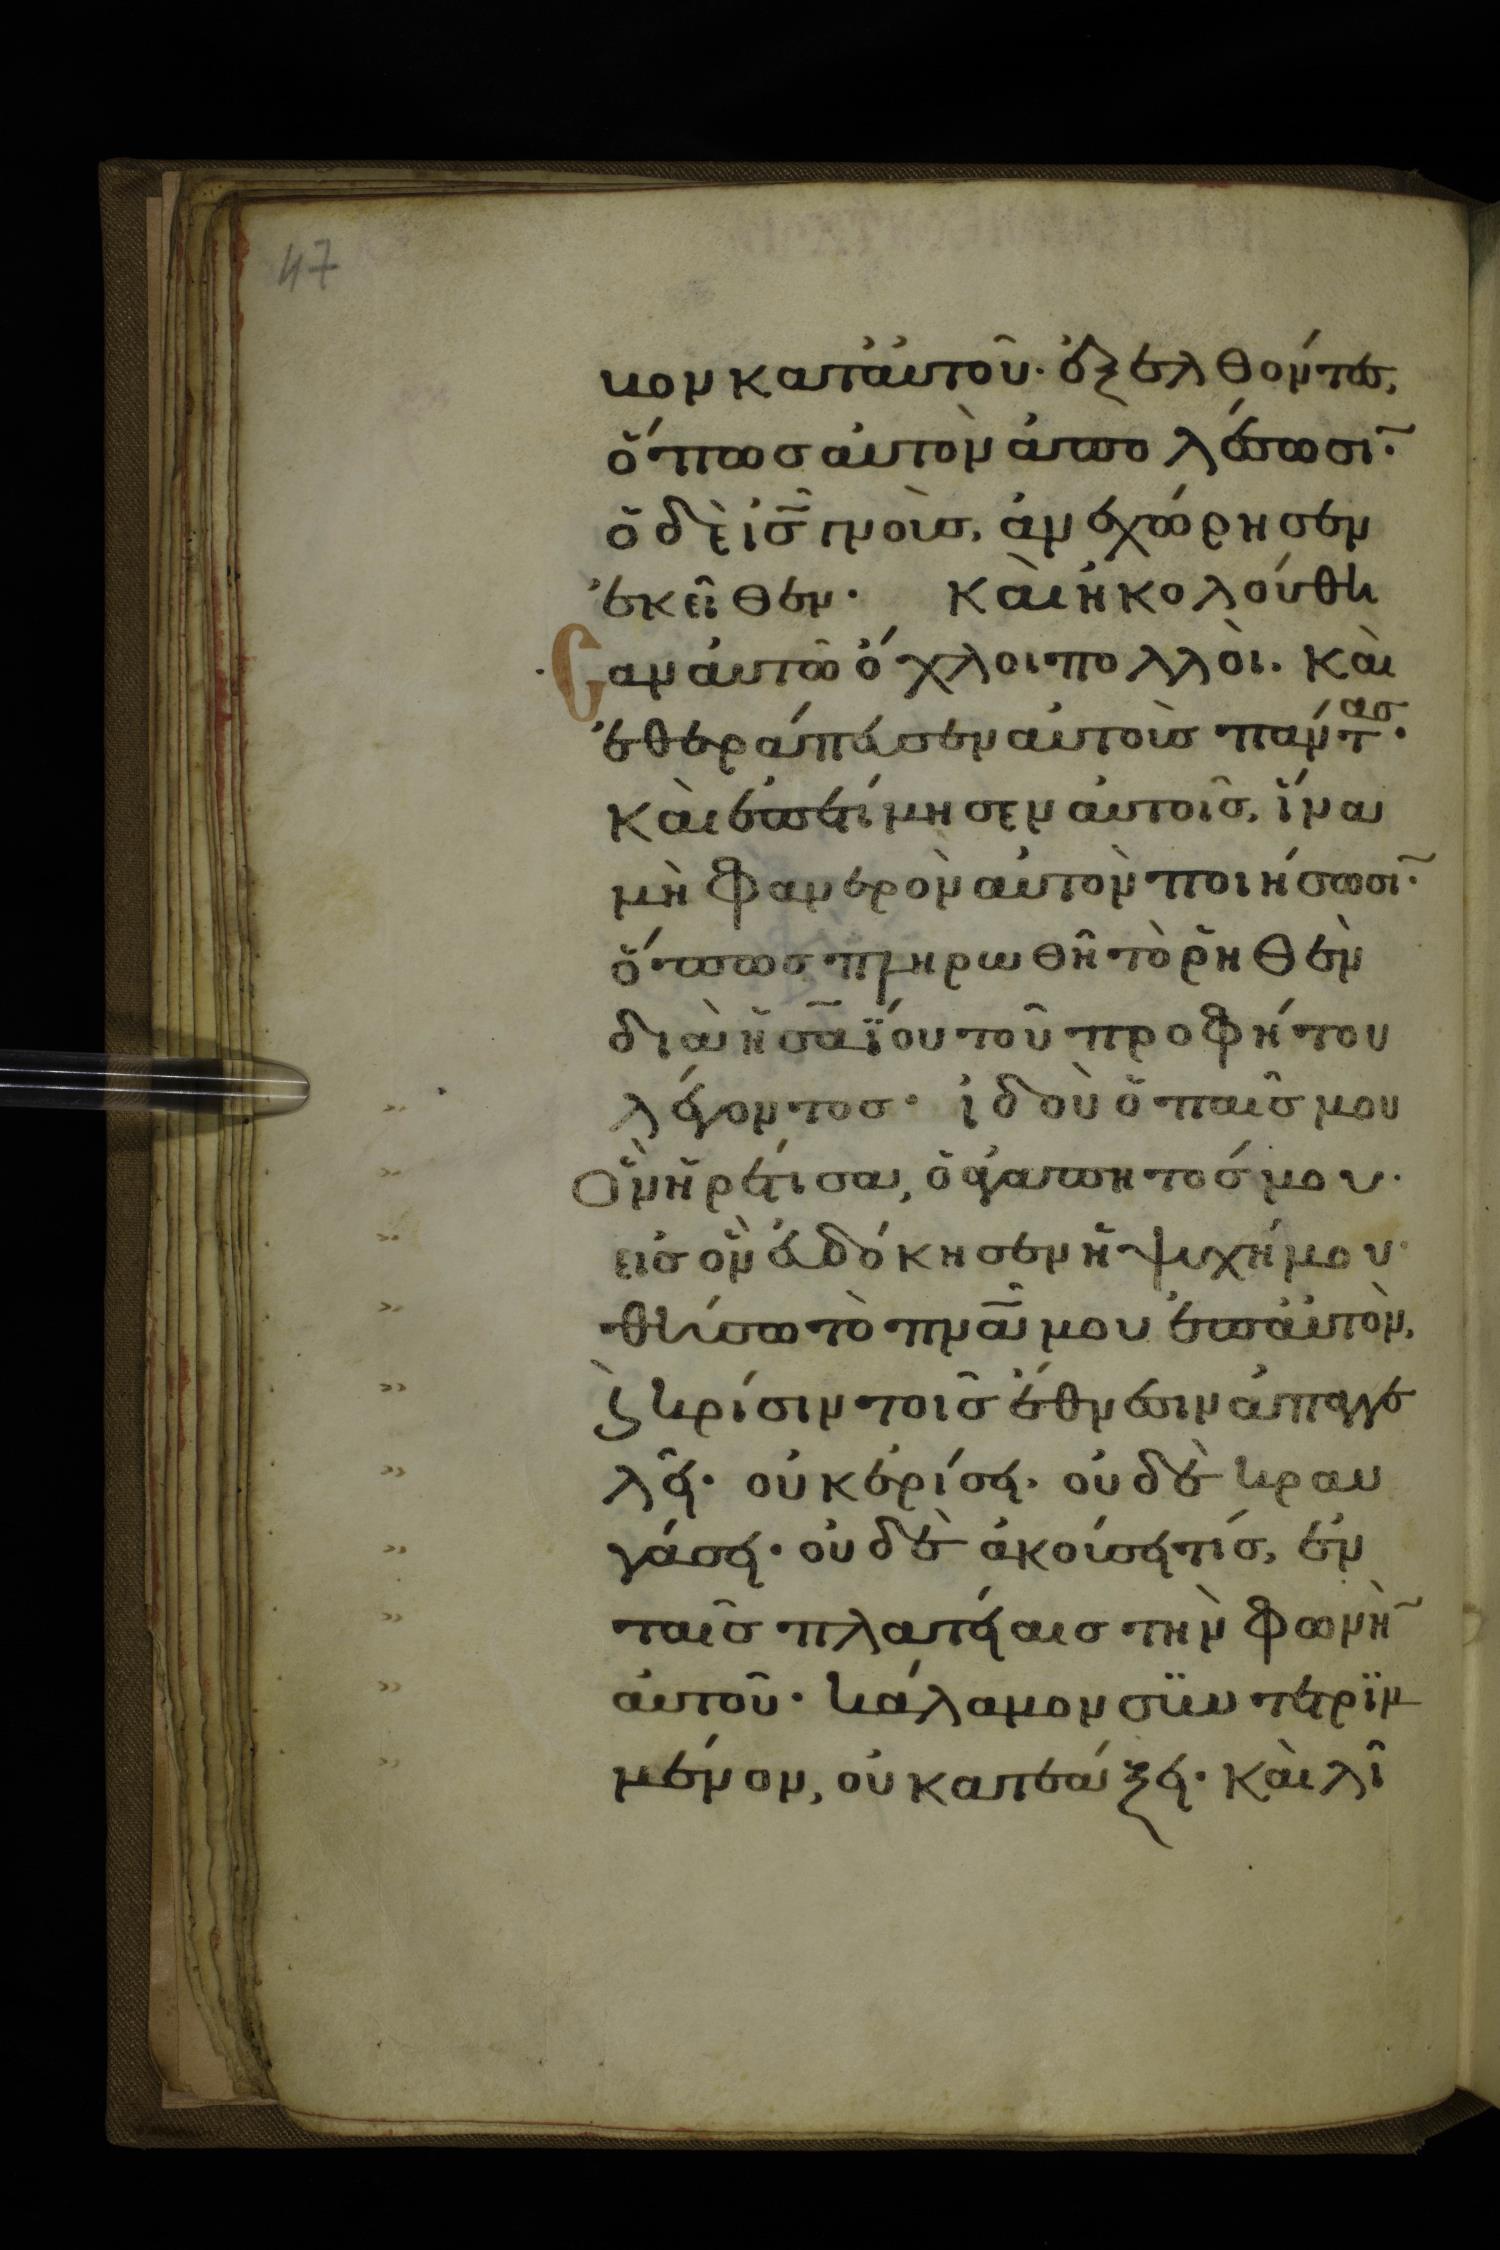 47
κον κατ' αὐτοῦ· ἐξελθόντες,
ὅπως αὐτὸν ἀπολέσωσι̃·
ὁ δὲ ις̅ γνοὺς, ἀνεχώρησεν
ἐκεῖθεν· Καὶ ἠκολούθη
σαν αὐτῶ ὄχλοι πολλοὶ. Καὶ
ἐθεράπευσεν αὐτοὺς πάντας·
Καὶ ἐπετίμησεν αὐτοῖς, ἵνα
μὴ φανερὸν αὐτὸν ποιήσωσι̃·
ὅπως πληρωθῆ τὸ ῥηθὲν
διὰ ἡσαΐου τοῦ προφήτου
λέγοντος· ἰδοὺ ὁ παῖς μου
ὃν ἡρέτισα, ὁ ἀγαπητός μου·
εἰς ὃν εὐδόκησεν ἡ ψυχή μου·
θήσω τὸ πνα̅ μου ἐπ' αὐτὸν,
ϗ κρίσιν τοῖς ἔθνεσιν ἀπαγγε
λεῖ· οὐκ ἐρίσει· οὐδὲ κραυ
γάσει· οὐδὲ ἀκούσει τίς, ἐν
ταῖς πλατείαις τὴν φωνὴ̃
αὐτοῦ· κάλαμον συντετριμ
μένον, οὐ κατεάξει· Καὶ λῖ